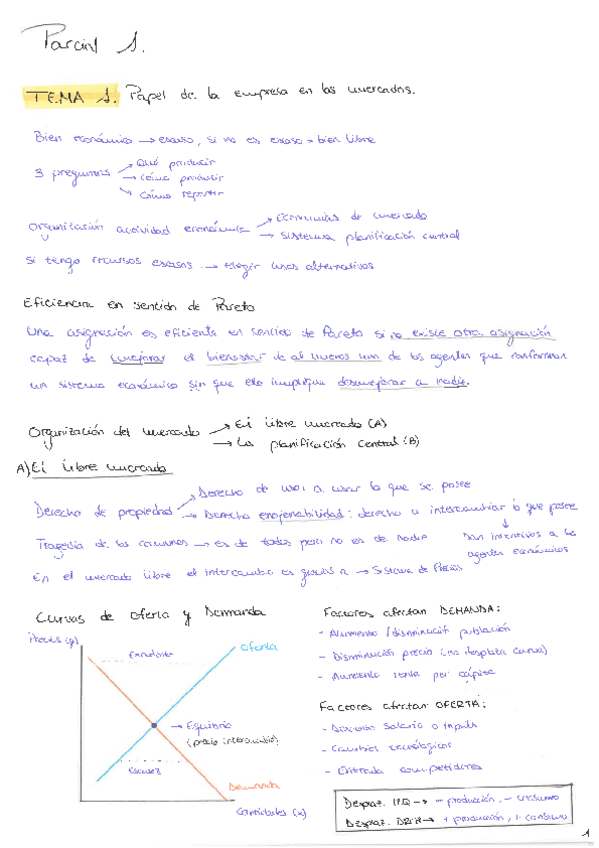 Parcial 1.
TEMA 1. Papel de la empresa en los mercados.
Bien económico → escaso, si no es escaso → bien libre
3 preguntas → Qué producir
→ cómo producir
→ cómo repartir
Organización actividad económica → Economías de mercado
→ Sistema planificación central
Si tengo recursos escasos → elegir usos alternativos
Eficiencia en sentido de Pareto
Una asignación es eficiente en sentido de Pareto si no existe otra asignación
capaz de mejorar el bienestar de al menos uno de los agentes que conforman
un sistema económico sin que ello implique desmejorar a nadie.
Organización del mercado → El libre mercado (A)
→ La planificación central (B)
A) El libre mercado
Derecho de propiedad → Derecho de uso: a usar lo que se posee
→ Derecho enajenabilidad: derecho a intercambiar lo que posee
Tragedia de los comunes → es de todos pero no es de nadie
Dan incentivos a los
agentes económicos
En el mercado libre el intercambio es gracias a → Sistema de Precios
Curvas de Oferta y Demanda
Precios (p)
Excedente
Oferta
→ Equilibrio
(precio intercambio)
Escasez
Demanda
Cantidades (x)
Factores afectan DEMANDA:
- Aumento / disminución población
- Disminución precio (no desplaza curva)
- Aumento renta per cápita
Factores afectan OFERTA:
- salario o inputs
- Cambios tecnológicos
- Entrada competidores
Desplaz. IZQ → - producción, - consumo
Desplaz. DRCH → + producción, + consumo
1